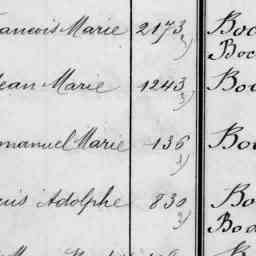 rancois Marie 2173 Boc
3) Boc
Jean Marie 1243 Boc
3)
manuel Marie 136 Bo
1)
uis Adolphe 830 Bo
3) Bod